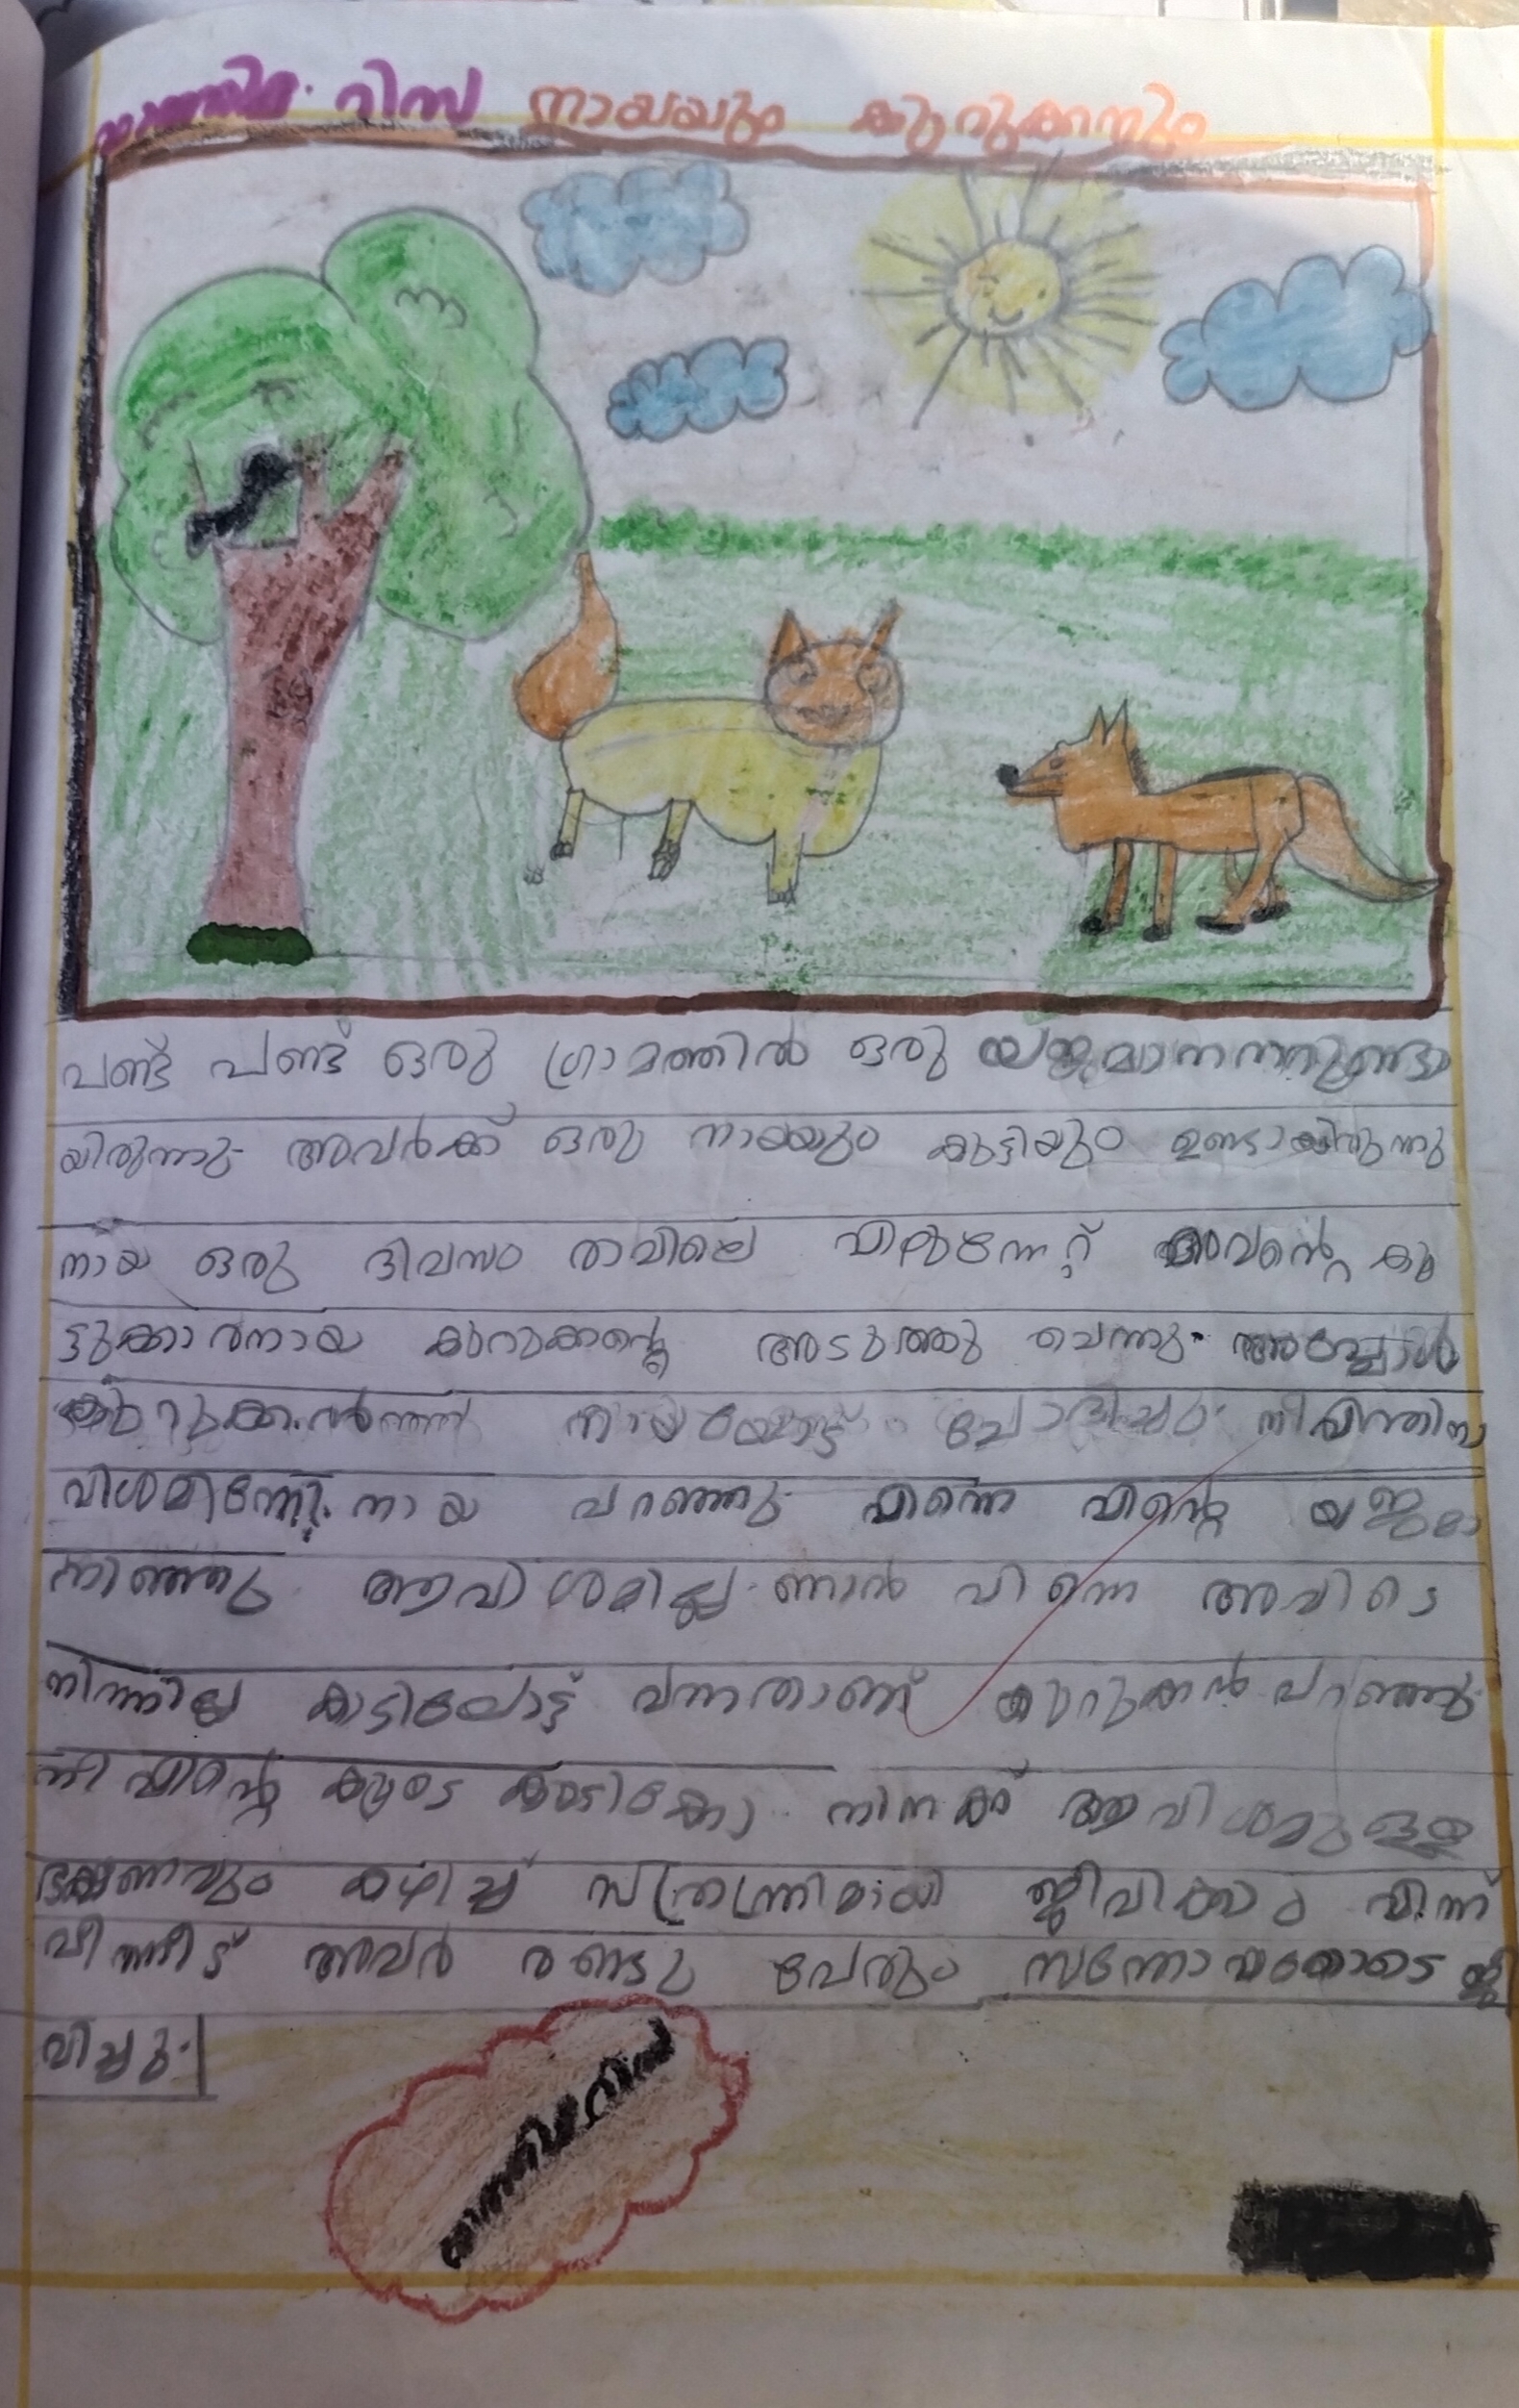 റിസ നായയും കുറുക്കനും
പണ്ട് പണ്ട് ഒരു ഗ്രാമത്തിൽ ഒരു യജമാനനുണ്ടാ
യിരുന്നു. അവർക്ക് ഒരു നായയും കുട്ടിയും ഉണ്ടായിരുന്നു
നായ ഒരു ദിവസം രാവിലെ എഴുന്നേറ്റ് അവന്റെ കൂ
ട്ടുകാരനായ കുറുക്കന്റെ അടുത്തു ചെന്നു. അപ്പോൾ
നായയോട് ചോദിച്ചു. നീ എന്തിനാ
വിശമിന്നേ. നായ പറഞ്ഞു എന്നെ എന്റെ യജമാ
ആവിശമില്ല. ഞാൻ പിന്നെ അവിടെ
നിന്നില്ല കാടിലോട്ട് വന്നതാണ് കുറുക്കൻ പറഞ്ഞു.
നീ എന്റെ കൂടെ കൂടിക്കോ നിനക്ക് ആവിശമുള്ള
ഭക്ഷണവും കഴിച്ച് ജീവിക്കാം എന്ന്
പിന്നീട് അവർ രണ്ടു പേരും സന്തോഷത്തോടെ ജീ
വിച്ചു.